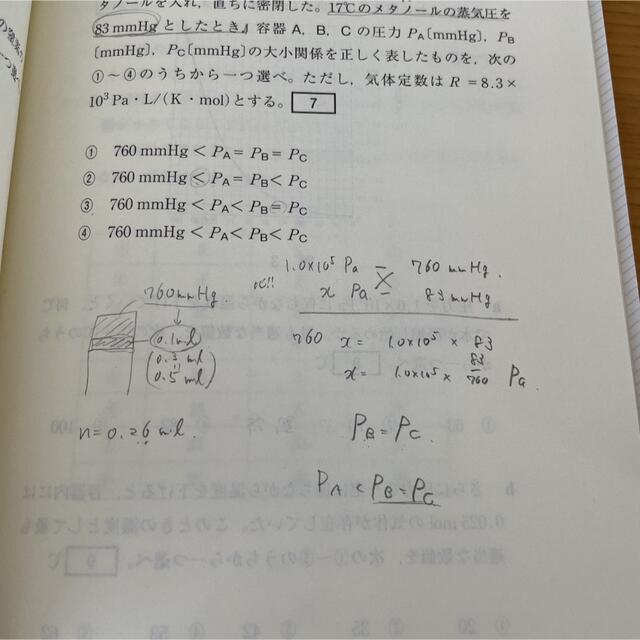 タノールを入れ，直ちに密閉した。17℃のメタノールの蒸気圧を
83 mmHgとしたとき』容器A，B，Cの圧力 PA〔mmHg〕，PB
〔mmHg〕，PC〔mmHg〕の大小関係を正しく表したものを，次の
①〜④のうちから一つ選べ。ただし，気体定数は R = 8.3×
10³ Pa・L/(K・mol)とする。 7
① 760 mmHg < PA = PB = PC
② 760 mmHg < PA = PB < PC
③ 760 mmHg < PA < PB = PC
④ 760 mmHg < PA < PB < PC
1.0×10⁵ Pa 760 mmHg
x Pa 83 mmHg
760 x = 1.0×10⁵ × 83
x = 1.0×10⁵ × 83/760 Pa
760 mmHg
0.1 ml
0.3 ml
0.5 ml
n=0.26 ml.
PB = PC.
PA < PB = PC